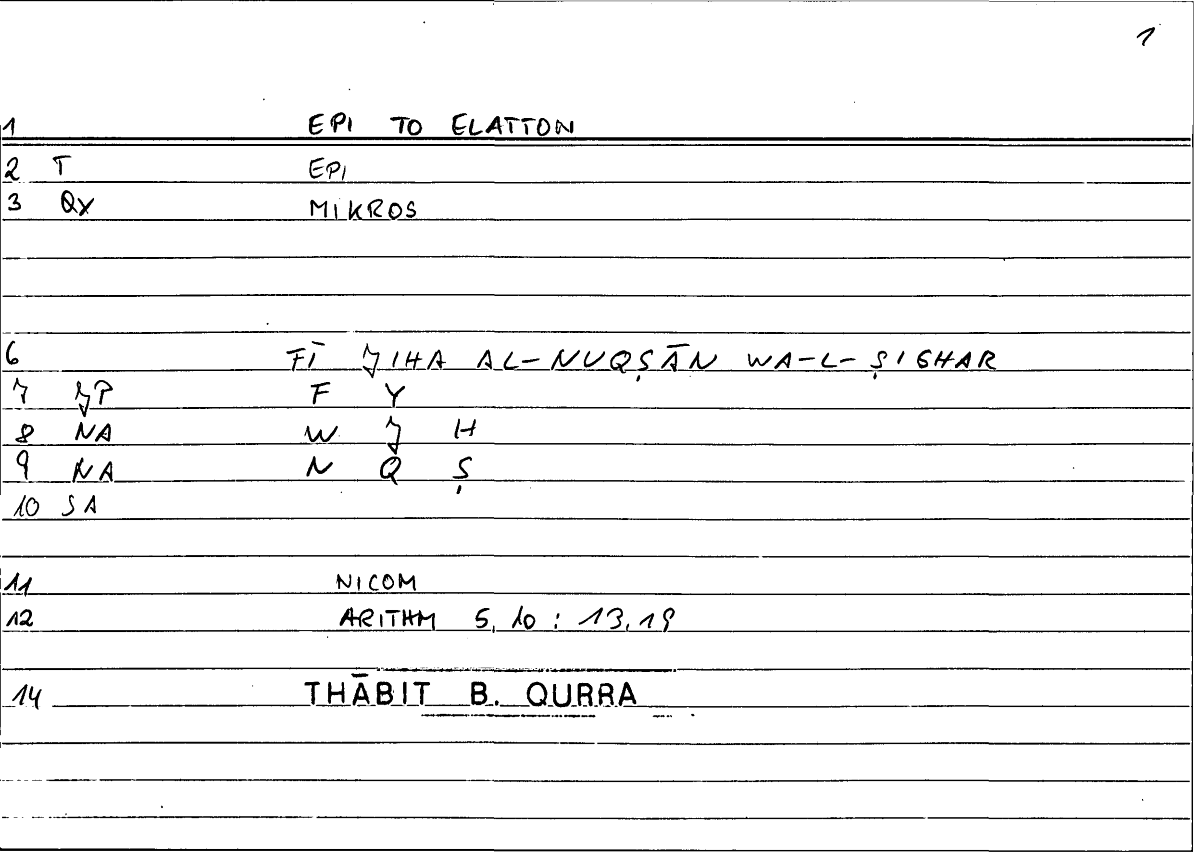 1
1 EPI TO ELATTON
2 T EPI
3 QX MIKROS
6 FĪ JIHA AL-NUQṢĀN WA-L-ṢIGHAR
7 JP F Y
8 NA W J H
9 NA N Q Ṣ
10 SA
11 NICOM
12 ARITHM 5,10 : 13,19
14 THĀBIT B. QURRA